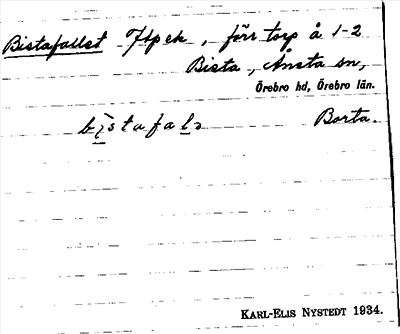 Bistafallet Jtpek, förr torp å 1-2
Bista, Ånsta sn,
Örebro hd, Örebro län.
bistafalɔ Borta.
KARL-ELIS NYSTEDT 1934.